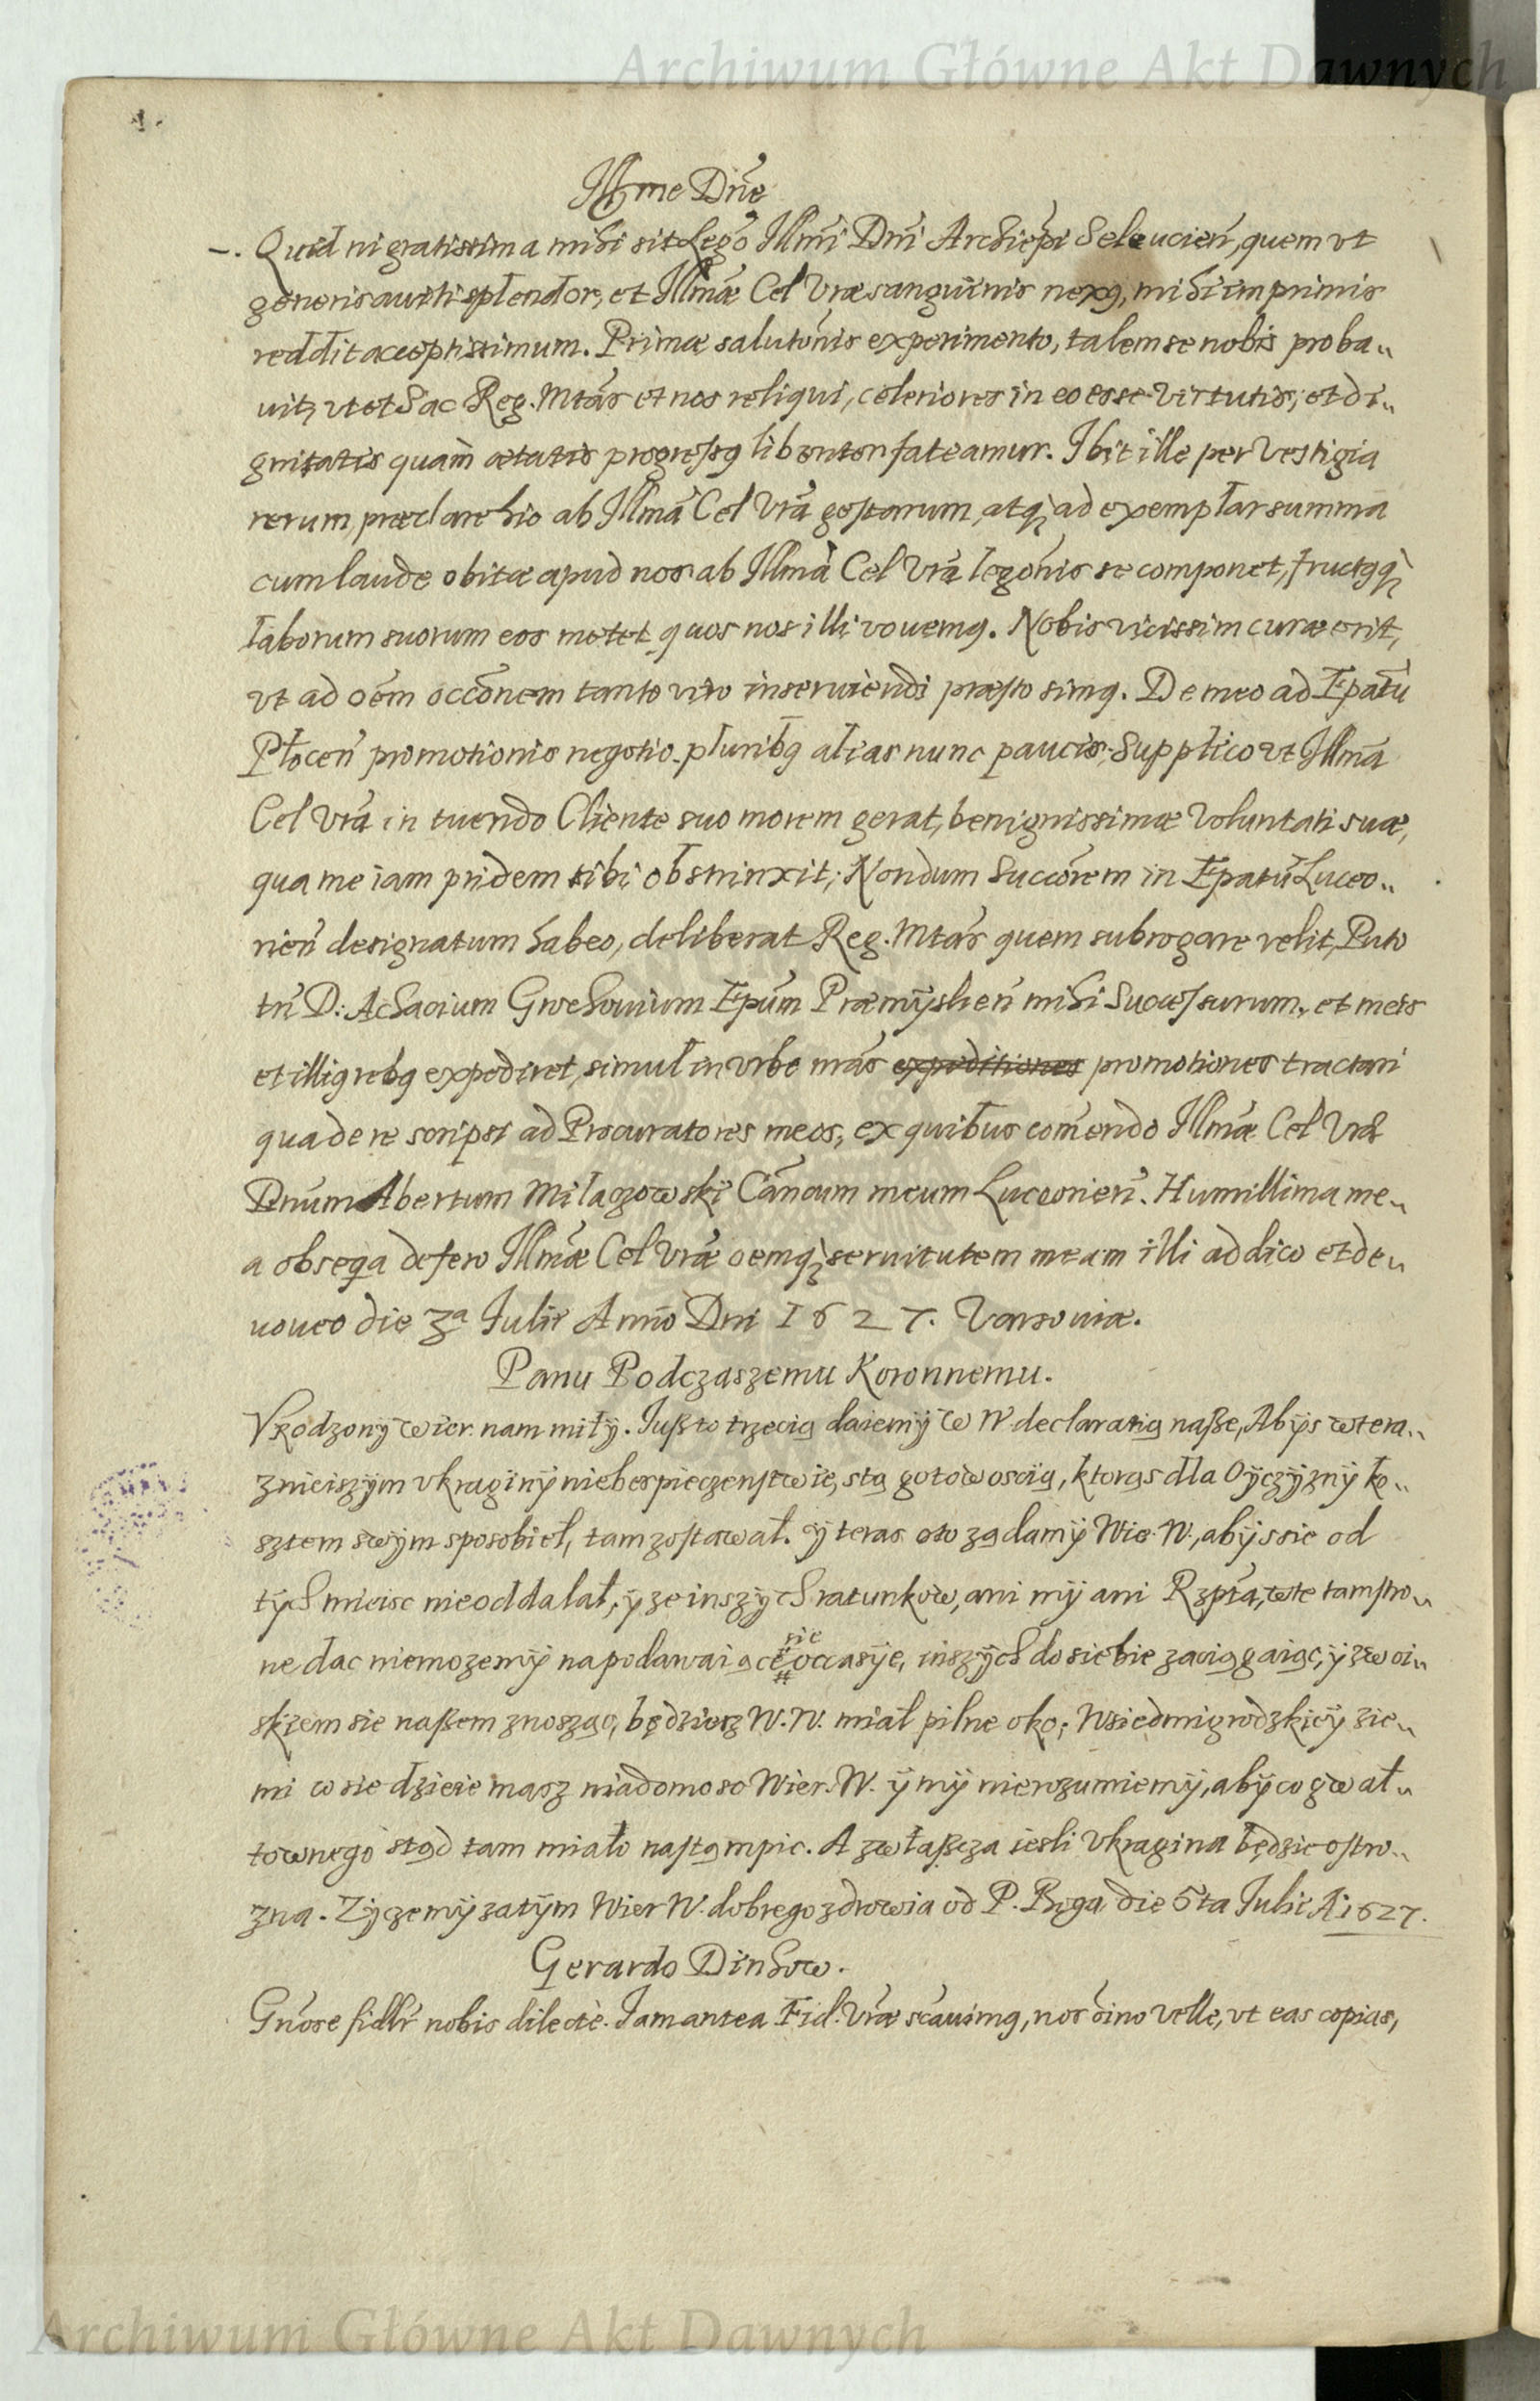 Archiwum Główne Akt Dawnych
Illme Dne
Quid ni gratissima mihi sit Lego Illmi Dni Archiepi Seleucien, quem vt
generis auiti splendor, et Illmæ Cel Vræ sanguinis nexq, mihi imprimis
reddit acceptissimum. Primæ salutonis experimento, talem se nobis proba„
uit, vt et Sac Reg. Mtas et nos reliqui, celeriores in eo esse virtutis, et di„
gnitatis quam ætatis progressq libenter fateamur. Ibit ille per vestigia
rerum præclare hic ab Illma Cel Vra gestarum, atq ad exemplar summa
cum laude obitæ apud nos ab Illma Cel Vra legonis se componet, fructqq
laborum suorum eos metet quos nos illi vouemq. Nobis vicissim curæ erit,
vt ad oem occonem tanto viro inseruiendi præsto simq. De meo ad Epatu
Plocen promotionis negotio pluribq alias nunc paucis. Supplico vt Illma
Cel Vra in tuendo Cliente suo morem gerat, benignissimæ voluntati suæ,
qua me iam pridem sibi obstrinxit; Nondum Succorem in Epatu Luceo„
rien designatum habeo, deliberat Reg. Mtas quem subrogare velit, Puto
tn D: Achacium Grochouium Epum Præmyslien mihi Successurum, et meis
et illiq rebq expediret, simul in vrbe nras expeditiones promotiones tractari
qua de re scripsi ad Procuratores meos, ex quibus comendo Illmæ Cel Vræ
Dnum Abertum Milaczowski Canoum meum Luceorien. Humillima me„
a obseqa defero Illmæ Cel Vræ oemq seruitutem meam illi addico et de„
uoueo die 3a Iulii Anno Dni 1627. Varsouiæ.
Panu Podczaszemu Koronnemu.
Vrodzony wier. nam miły. Iuß to trzecią daiemy w W. declaratią naße, Abys w tera„
znieiszym vkrainy niebespieczenstwie, stą gotowoscią, ktorąs dla Oyczyzny ko„
sztem swym sposobieł, tam zostawał. y teras oto żądamy Wie. W., abys sie od
tych mieisc nieoddalał, y ze inszych ratunkow, ani my ani Rzpta, w te tam stro„
ne dac niemozemy na podawaiące sie occasye, inszych do siebie zaciągaiąc, y z woi„
skiem sie naßem znosząc, będziesz W. W. miał pilne oko; W siedmigrodzkiey zie„
mi co sie dzieie masz wiadomosc Wier. W. y my nierozumiemy, aby co gwał„
townego stąd tam miało nastąmpic. A zwłaßcza iesli Vkraina będzie ostro„
zna. Zyczemy zatym Wier W. dobrego zdrowia od P. Boga die 5ta Iulii A 1627.
Gerardo Dinhow.
Gnose fidlr nobis dilecte. Iam antea Fid. Vræ scauimq, nos oino velle, vt eas copias,
Archiwum Główne Akt Dawnych